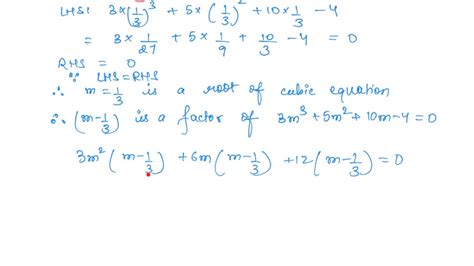 LHS: 3×(1/3)³ + 5×(1/3)² + 10×1/3 - 4
= 3×1/27 + 5×1/9 + 10/3 - 4 = 0
RHS = 0
∵ LHS=RHS
∴ m=1/3 is a root of cubic equation
∴ (m-1/3) is a factor of 3m³+5m²+10m-4=0
3m²(m-1/3) +6m(m-1/3) +12(m-1/3)=0